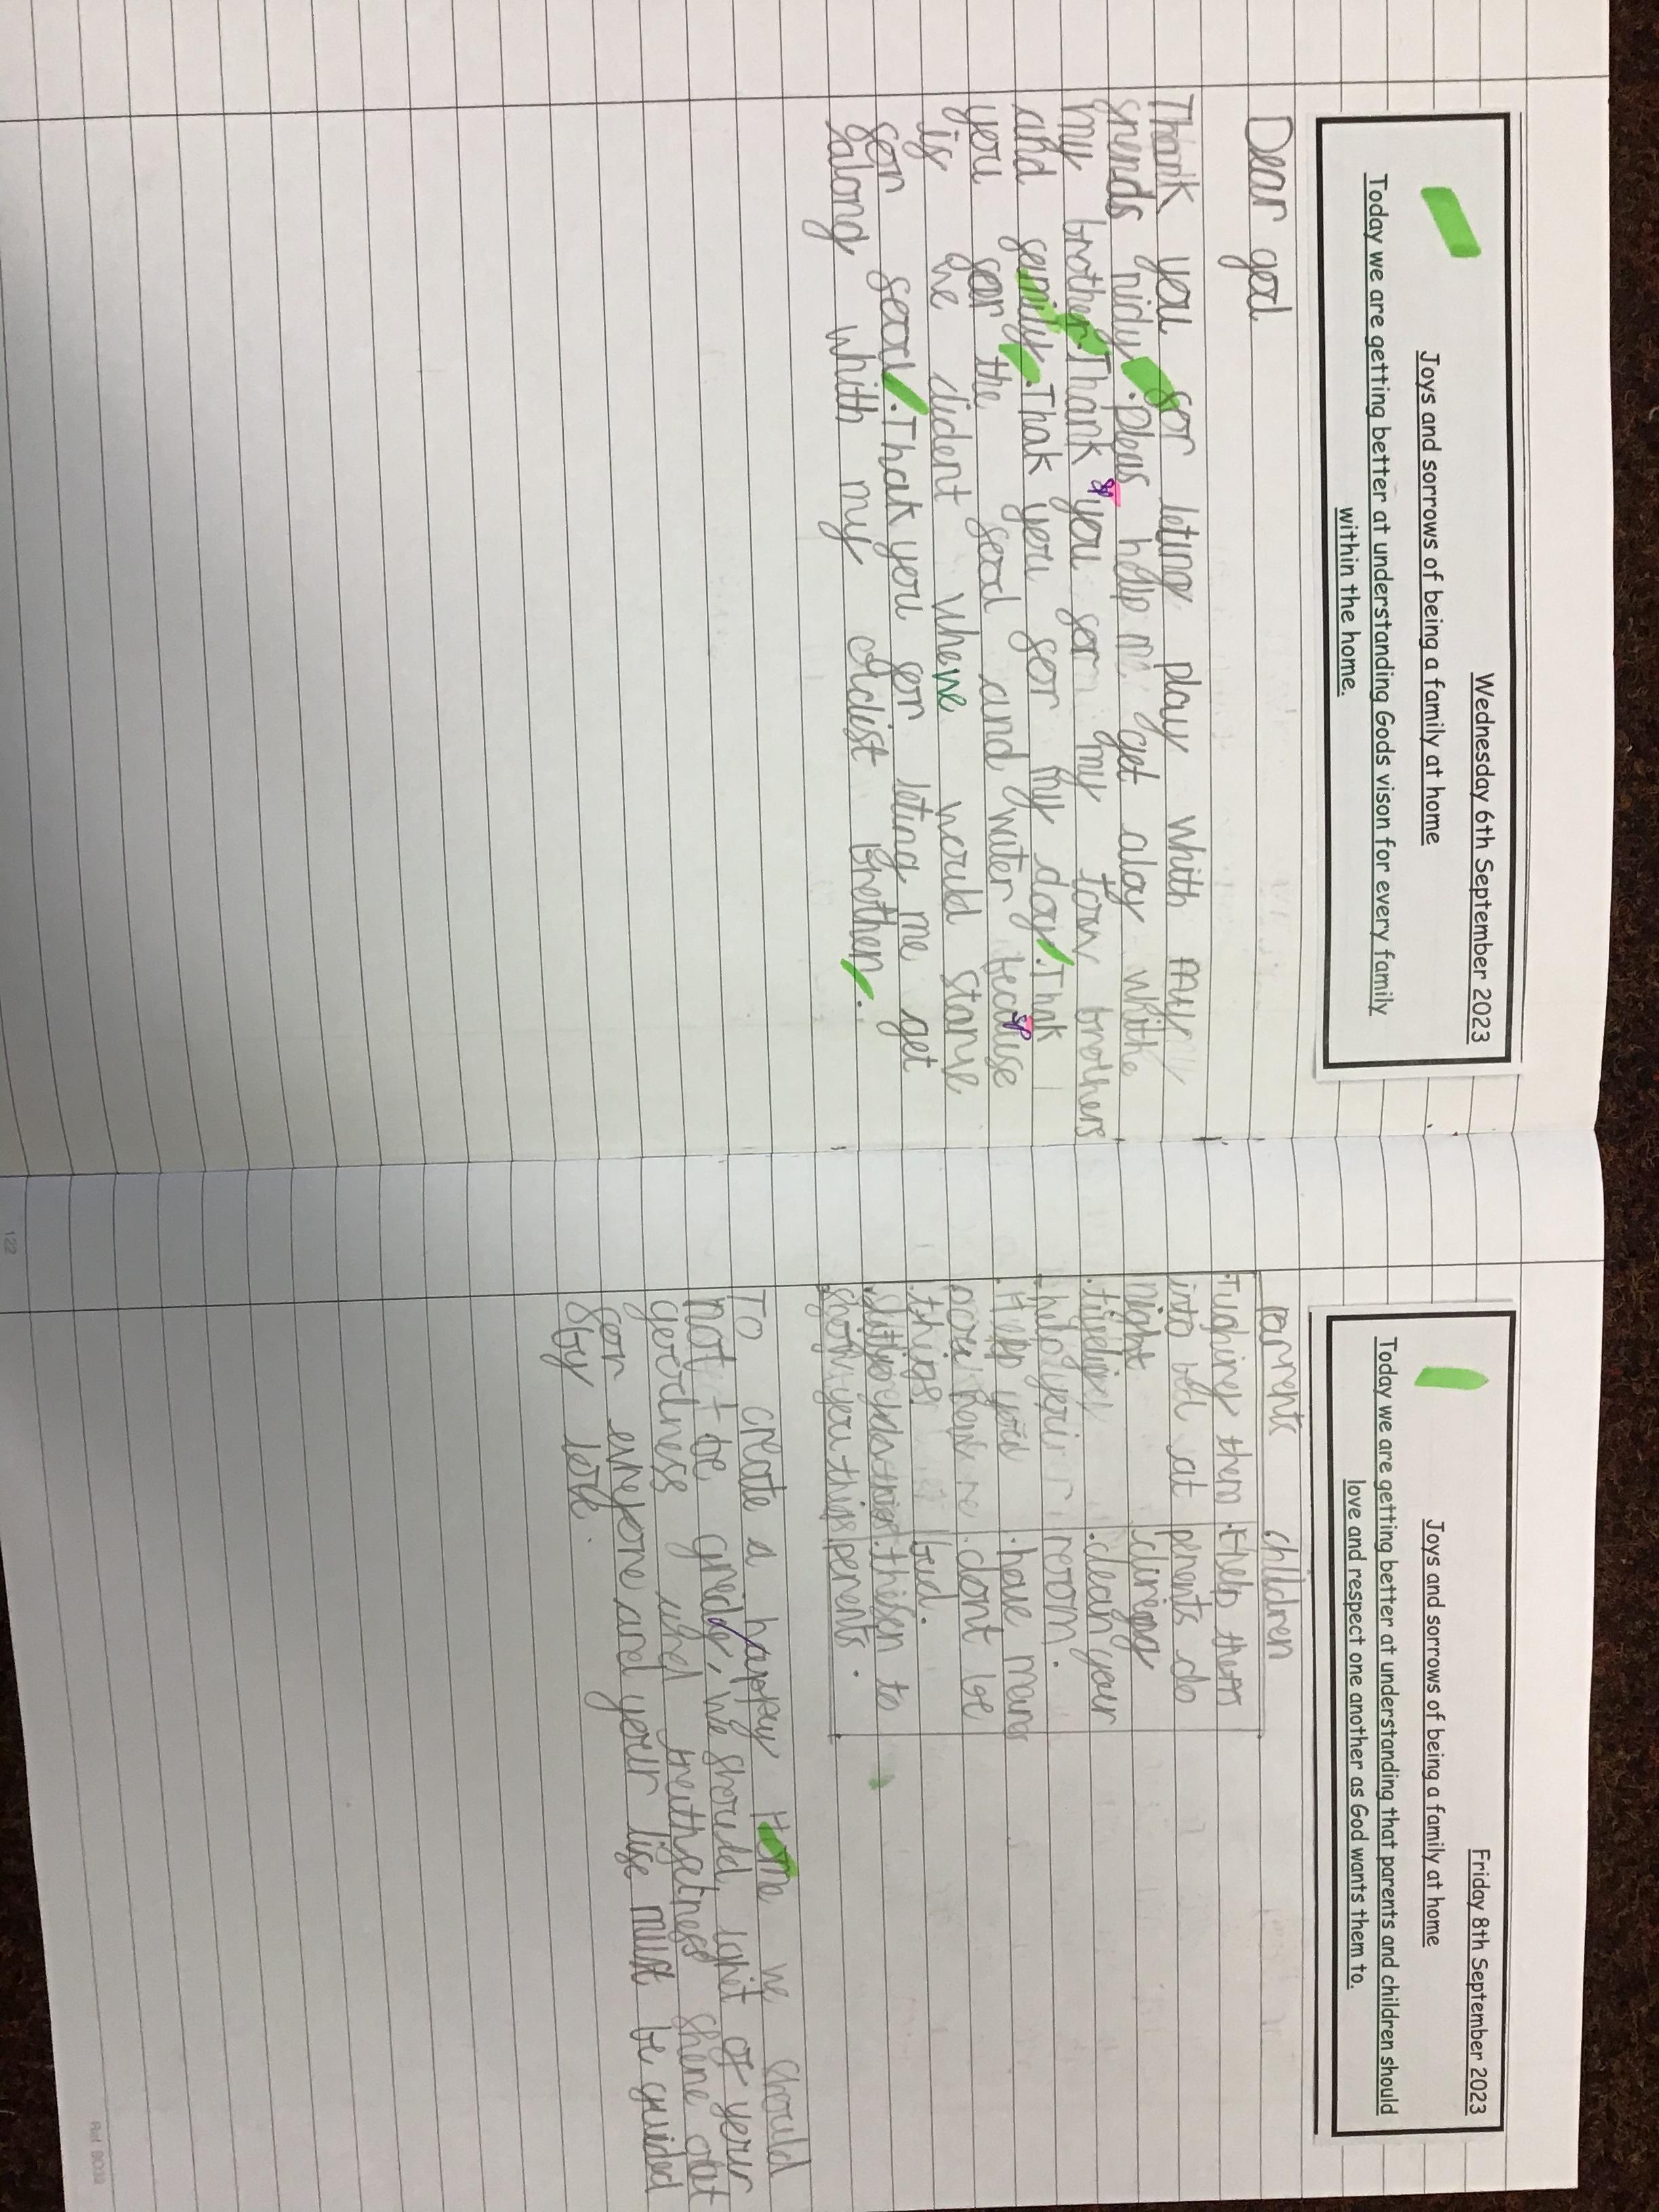 Wednesday 6th September 2023
Joys and sorrows of being a family at home
Today we are getting better at understanding Gods vison for every family
within the home.
Dear god
Thank you for leting play whith my
frends nidy. pleas help me get alay withe
my brother. Thank you for my tow brothers
and family. Thak you for my day. Thak
you for the food and water because
if he dident whene would starve
for food. Thak you for leting me get
along whith my oldist Brother.
Friday 8th September 2023
Joys and sorrows of being a family at home
Today we are getting better at understanding that parents and children should
love and respect one another as God wants them to.
children
them
.help them
into bed at
perents do
night
.tidying
.clean your
help your
room.
.Help you
.have
.dont be
things
bad.
.thisen to
show you this
perents.
To create a happy Home we should
not be greedy, we should light of your
goodness and truthfulness shene out
for everyone and your life must be guided
by love.
122